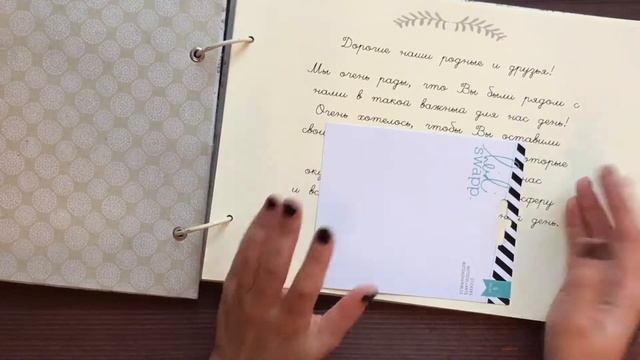 Дорогие наши родные и друзья!
Мы очень рады, что Вы были рядом с
нами в такой важный для нас день!
Очень хотелось, чтобы Вы оставили
сво
которые
ок нас
и вс сферу
день.
heidi
swapp.